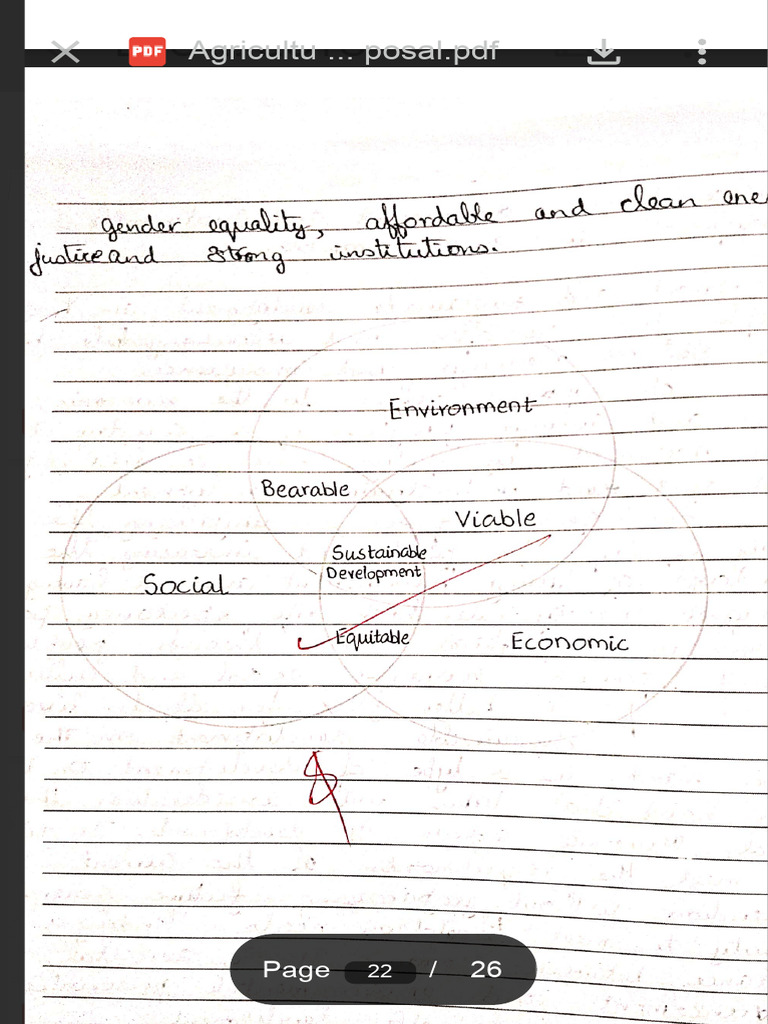 Agricultu ... posal.pdf
PDF
gender equality, affordable and clean ene
justice and strong institutions.
Environment
Bearable
Viable
Sustainable
Development
Social
Equitable
Economic
Page 22 / 26